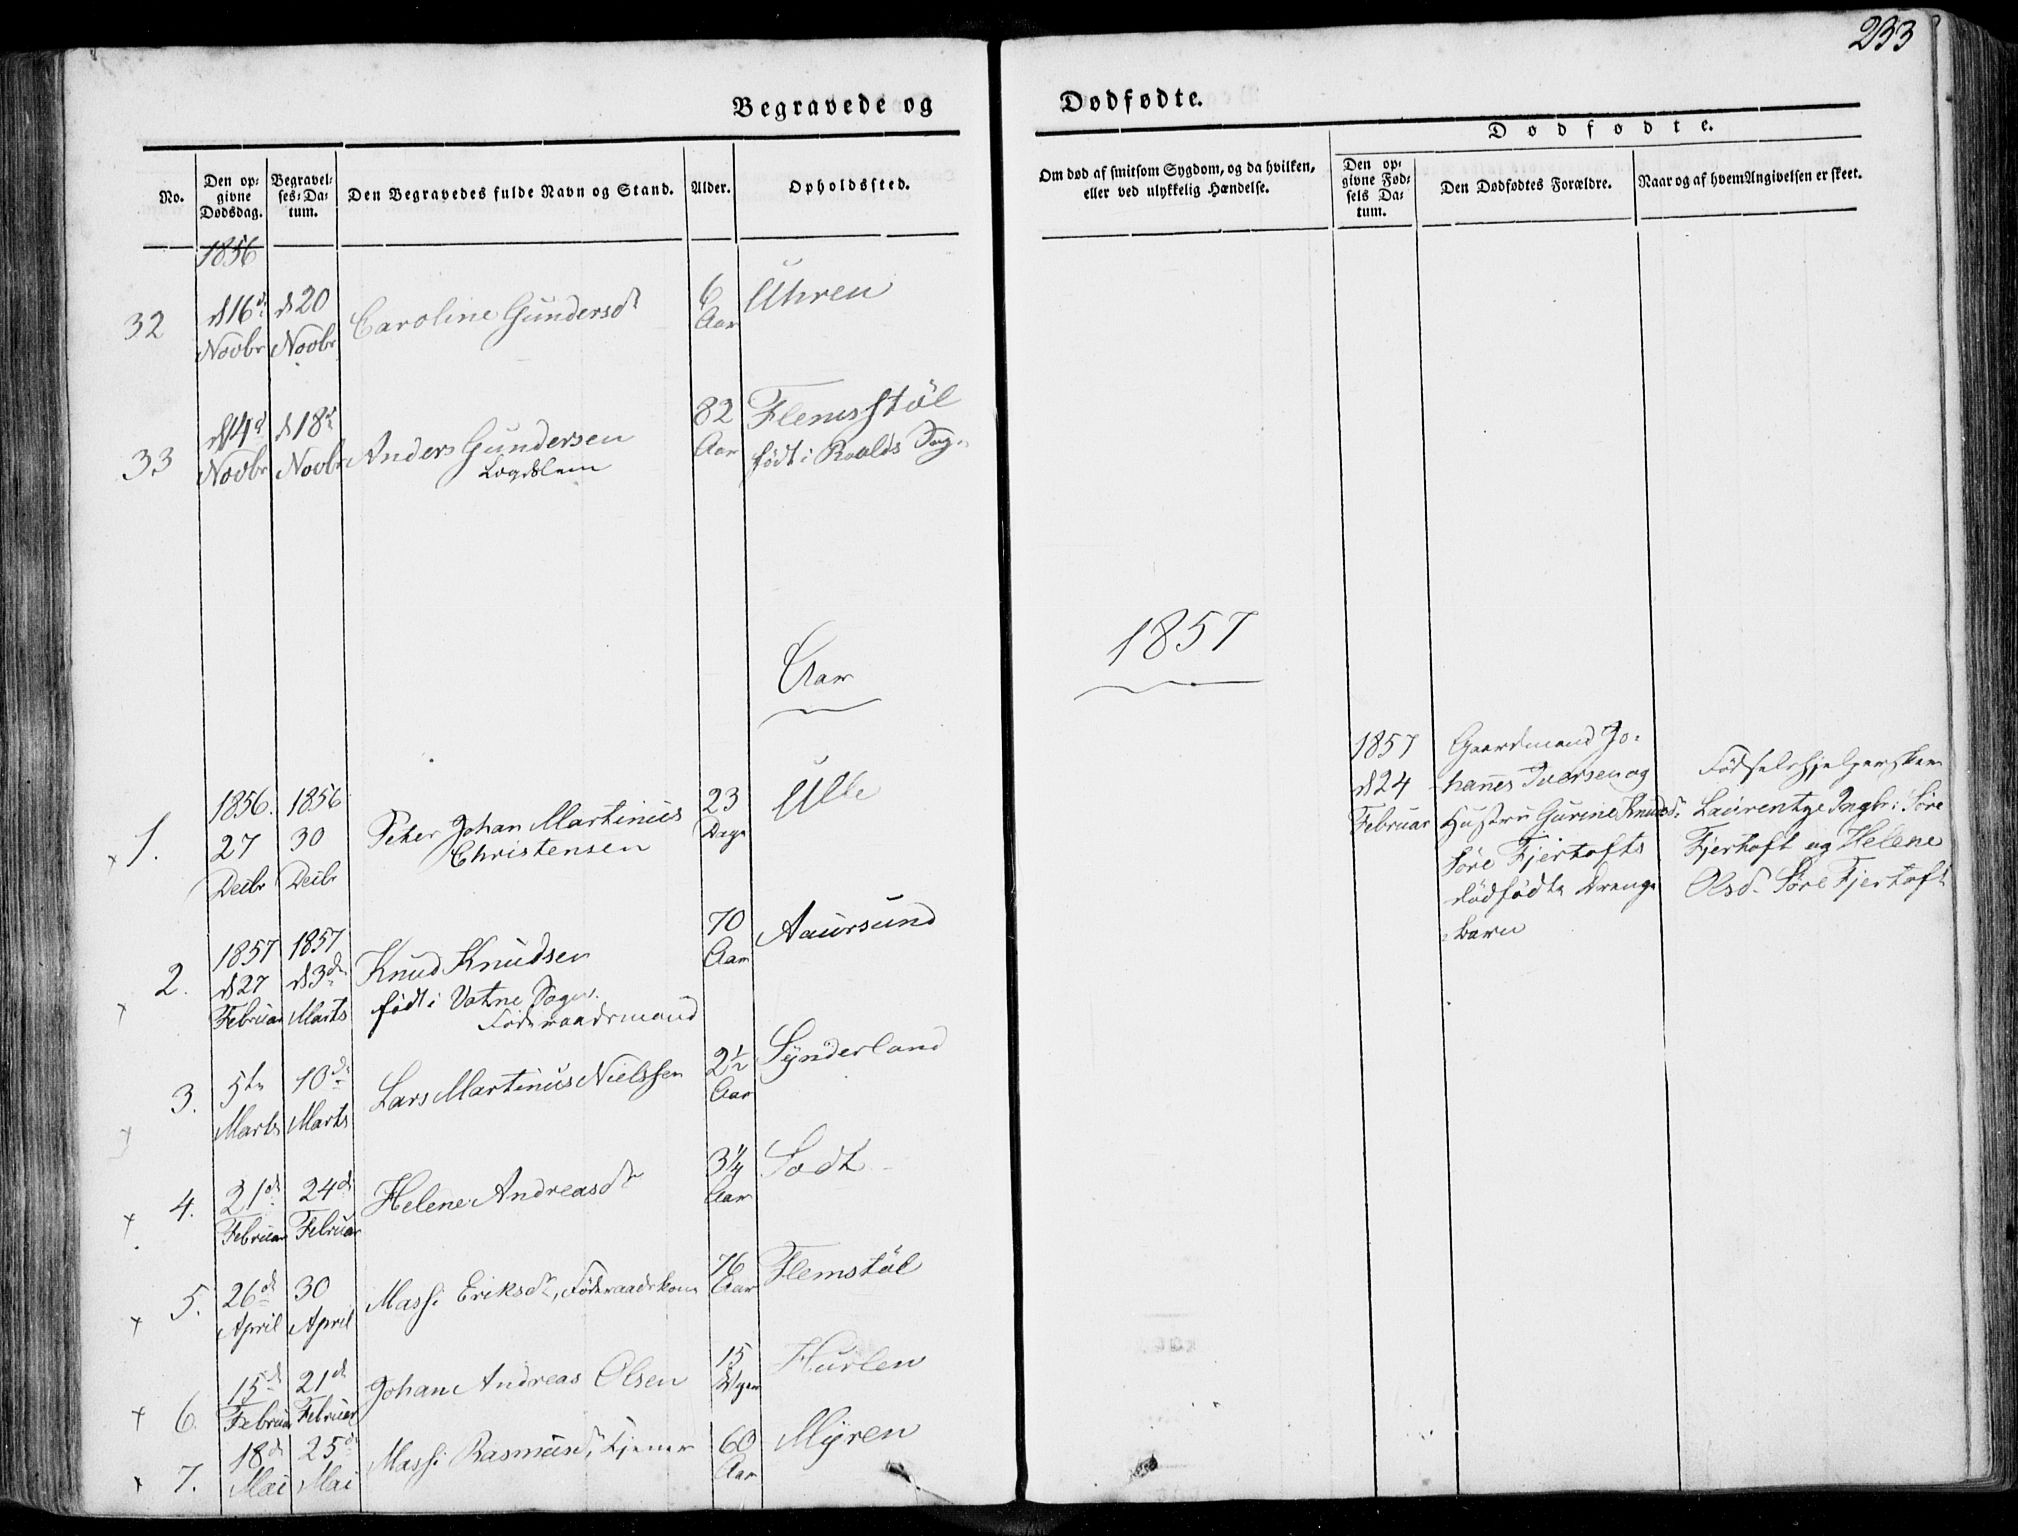 233
Begravede og
Dødfødte.
Dødfødte.
No.
Den op-
givne
Dødsdag.
Begravel-
ses-Da-
tum.
Den Begravedes fulde Navn og Stand.
Alder.
Opholdssted.
Om død af smitsom Sygdom, og da hvilken,
eller ved ulykkelig Hændelse.
Den op-
givne Fød-
sels Da-
tum.
Den Dødfødtes Forældre.
Naar og af hvem Angivelsen er skeet.
1856
32
d 16d
Novbr
d 20
Novbr
Caroline Gundersdr
6
Aar
Uhren
33
d 14d
Novbr
d 18d
Novbr
Anders Gundersen
Lægdslem
82
Aar
Flemsstøl
født i Roalds Sogn
Aar
1857
1.
1856.
27
Decbr
1856
30
Decbr
Peter Johan Martinus
Christensen
23
Dage
Ulle
1857
d 24
Februar
Gaardmand Jo-
hannes Iversen og
Hustru Gurine Knudsd.
Søre Fjertofts
dødfødte Drenge
-barn
Fødselshjelpersken
Laurentze Ingbr: Søre
Fjertoft og Helene
Olsd. Søre Fjertoft
2.
1857
d 27
Februar
1857
d 3de
Marts
Knud Knudsen
født i Vatne Sogn.
Føderaadsmand
70
Aar
Aaursund
3.
5te
Marts
10de
Marts
Lars Martinus Nielssen
2½
Aar
Synderland
4.
21de
Februar
24de
Februar
Helene Andreasdr
3¼
Aar
5.
26de
April
30
April
Massi Eriksdr, Føderaadskone
76
Aar
Flemstøl
6.
15de
Februar
21de
Februar
Johan Andreas Olsen
15
Uger
Hurlen
7.
18de
Mai
25de
Mai
Massi Rasmusdr, tjener
60
Aar
Myren